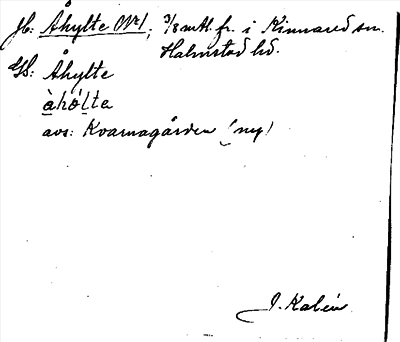 Jb: Åhylte Nr 1; 3/8 mtl. fr. i Kinnared sn.
Halmstad hd.
GS: Åhylte
àhó̀lta
avs: Kvarnagården (ny)
J. Kalén